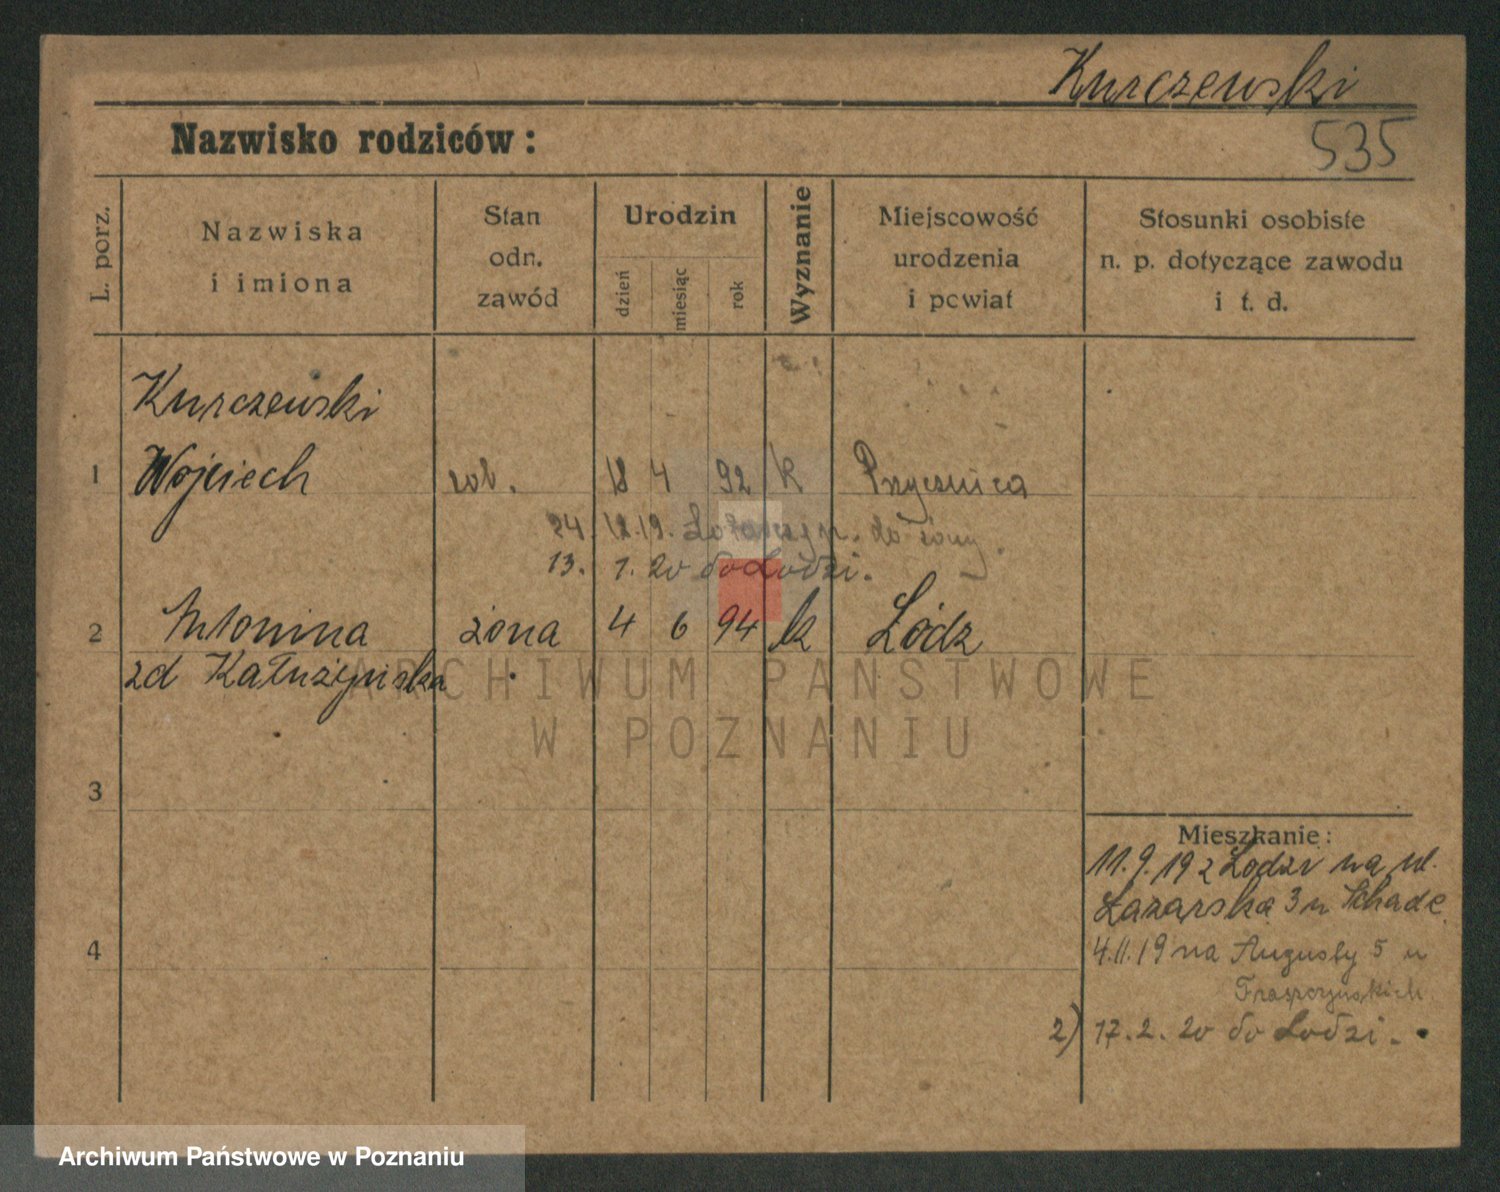 Kurczewski
Nazwisko rodziców:
535
L. porz.
Nazwiska
i imiona
Stan
odn.
zawód
Urodzin
dzień
miesiąc
rok
Wyznanie
Miejscowość
urodzenia
i powiat
Stosunki osobiste
n. p. dotyczące zawodu
i t. d.
Kurczewski
1 Wojciech rob. 18 4 92 k Przycznica
24. 12.19. do żony.
13. 1. 20 do Łodzi.
2 Antonina żona 4 6 94 k Łódz
zd Kałużyńska
ARCHIWUM PAŃSTWOWE
W POZNANIU
3
4
Mieszkanie:
11.9.19 z Łodzi na ul.
Łazarska 3 u Schade
4.11.19 na Augusty 5 u
2) 17.2.20 do Łodzi.
Archiwum Państwowe w Poznaniu